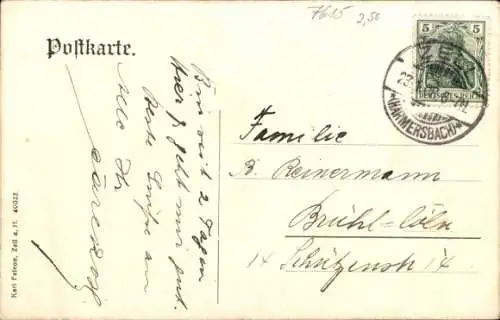 7615 2,50
Postkarte.
5
DEUTSCHES REICH
ZELL
(HARMERSBACH)
Bin seit 2 Tagen
hier geht mir gut.
Beste Grüße an
Alle Ihr
Familie
B. Reinermann
Brühl-Cöln
14 Schützenstr 14
Karl Felson, Zell a. H. 40322